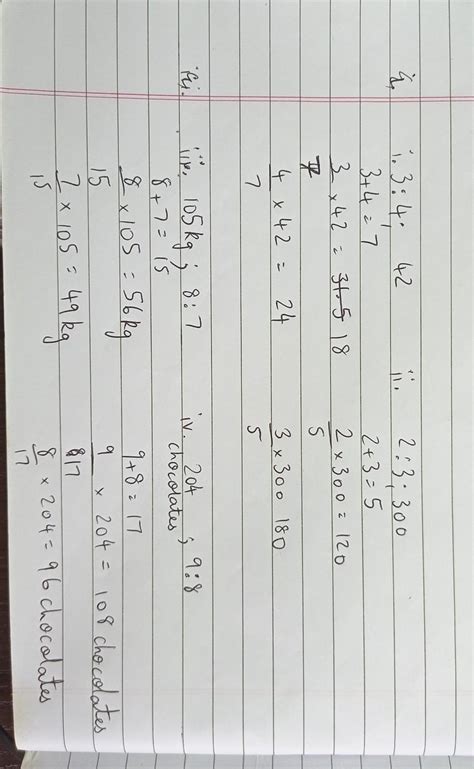 i. 3:4; 42
3+4=7
3/7 × 42 = 31.5 18
4/7 × 42 = 24
ii. 2:3; 300
2+3=5
2/5 × 300 = 120
3/5 × 300 180
iii. 105kg; 8:7
8+7=15
8/15 × 105 = 56kg
7/15 × 105 = 49kg
iv. 204 ; 9:8
chocolates
9+8=17
9/17 × 204 = 108 chocolates
8/17 × 204 = 96 chocolates